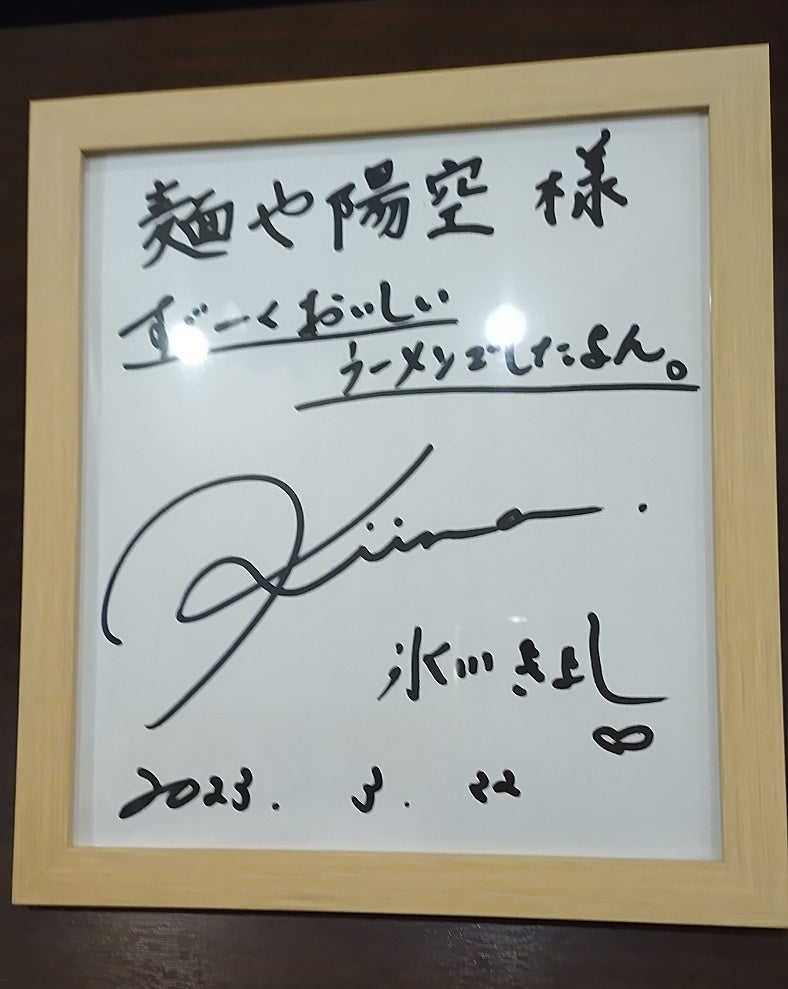 麺や陽空 様
すご~くおいしい
ラーメンでしたよん。
Kiina.
氷川きよし
∞
2023. 3. 22